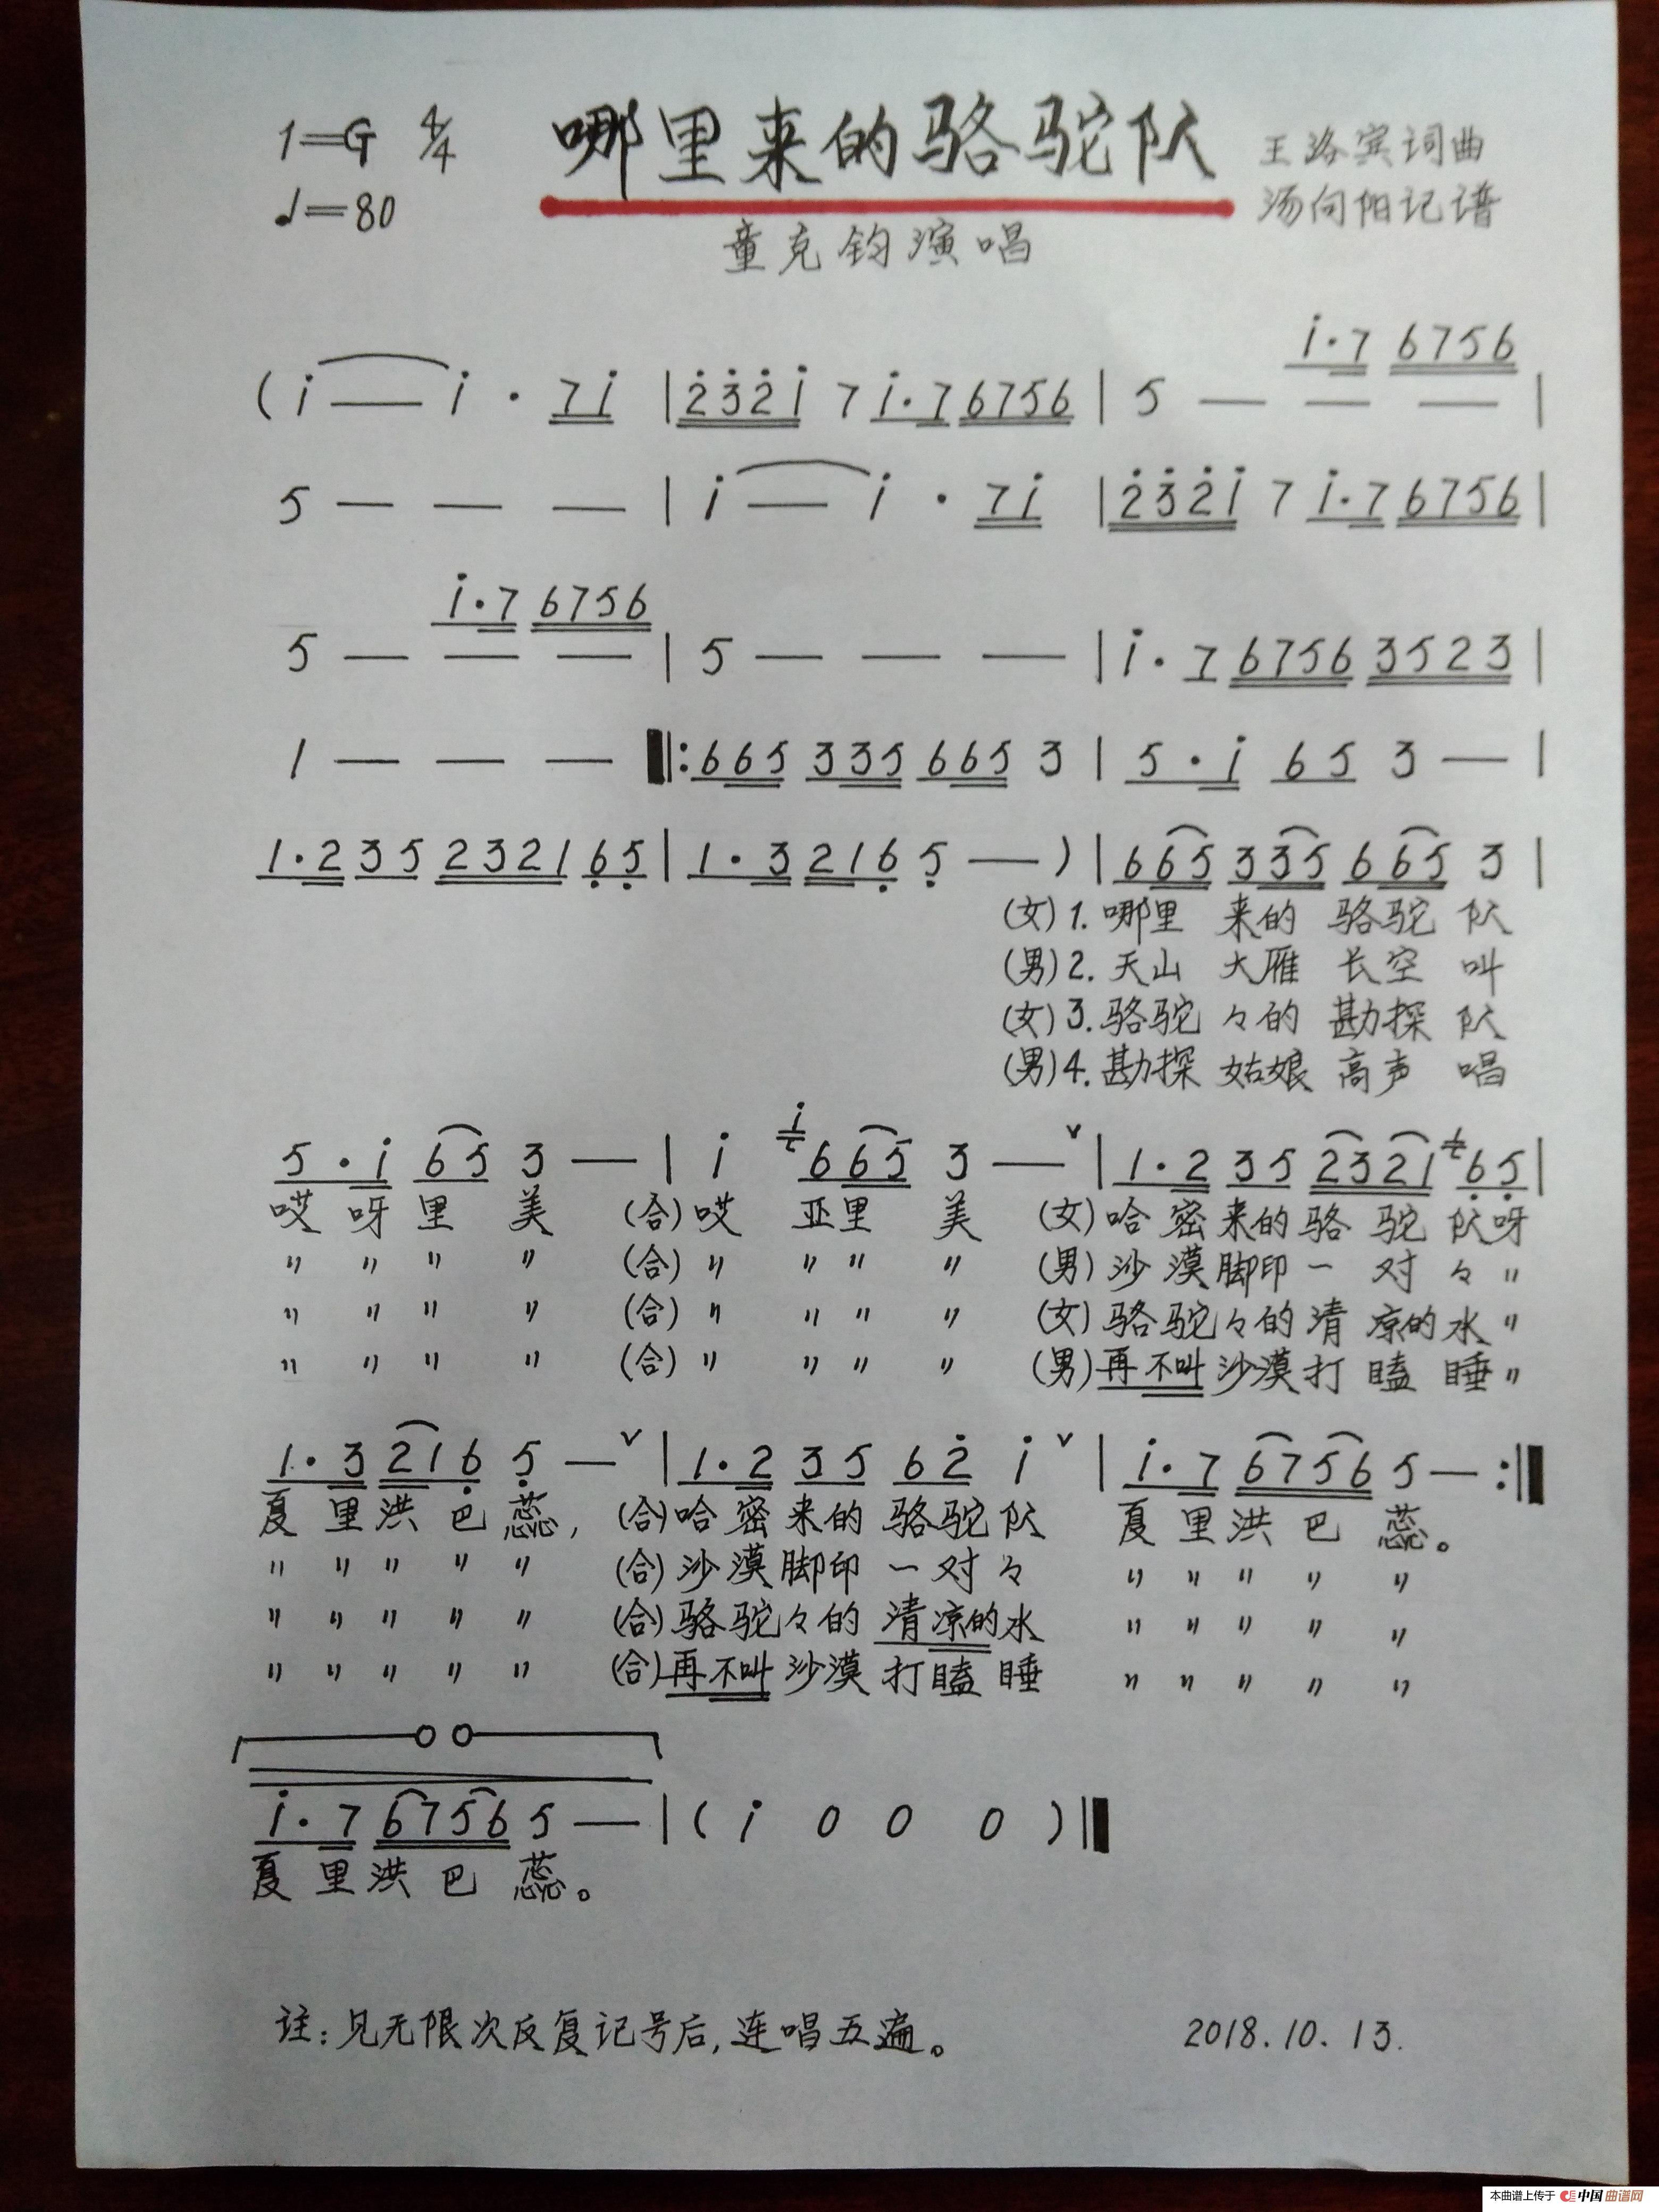 1=G 4/4 哪里来的骆驼队 王洛宾词曲
♩=80 汤向阳记谱
童克钧演唱
i·7 6756
( i — i · 7i | 2321 7 i·7 6756 | 5 — — — |
5 — — — | i — i · 7i | 2321 7 i·7 6756 |
i·7 6756
5 — — — | 5 — — — | i·7 6756 3523 |
1 — — — ‖: 665 335 665 3 | 5·i 65 3 — |
1·2 35 2321 65 | 1·3 216 5 — ) | 665 335 665 3 |
(女) 1. 哪里 来的 骆驼 队
(男) 2. 天山 大雁 长空 叫
(女) 3. 骆驼 々的 勘探 队
(男) 4. 勘探 姑娘 高声 唱
5·i 65 3 — | i i 665 3 — ∨ | 1·2 35 2321 1 65 |
哎 呀 里 美 (合) 哎 亚里 美 (女) 哈密来的骆驼队呀
〃 〃 〃 〃 (合) 〃 〃 〃 〃 (男) 沙漠脚印一对々〃
〃 〃 〃 〃 (合) 〃 〃 〃 〃 (女) 骆驼々的清凉的水〃
〃 〃 〃 〃 (合) 〃 〃 〃 〃 (男) 再不叫沙漠打瞌睡〃
1·3 216 5 — ∨ | 1·2 35 62 i ∨ | i·7 6756 5 — :‖
夏里洪巴蕊, (合) 哈密来的骆驼队 夏里洪巴蕊。
〃 〃 〃 〃 〃 (合) 沙漠脚印一对々 〃 〃 〃 〃 〃
〃 〃 〃 〃 〃 (合) 骆驼々的清凉的水 〃 〃 〃 〃 〃
〃 〃 〃 〃 〃 (合) 再不叫沙漠打瞌睡 〃 〃 〃 〃 〃
i·7 6756 5 — | ( i 0 0 0 ) ‖
夏里洪巴蕊。
注:见无限次反复记号后,连唱五遍。 2018.10.13.
本曲谱上传于 中国曲谱网